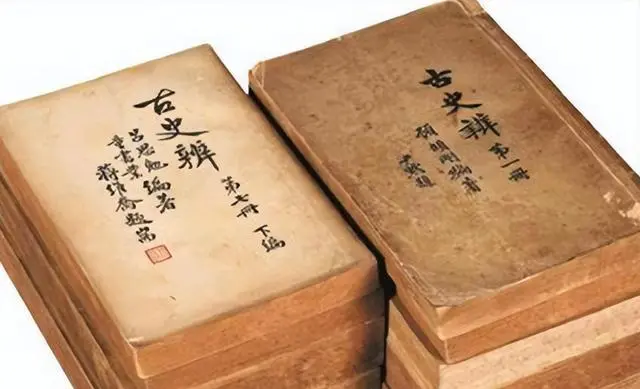 古史辨
第七冊 下編
呂思勉編著
童書業
蔣維喬題耑
古史辨
第一冊
顧頡剛編著
題